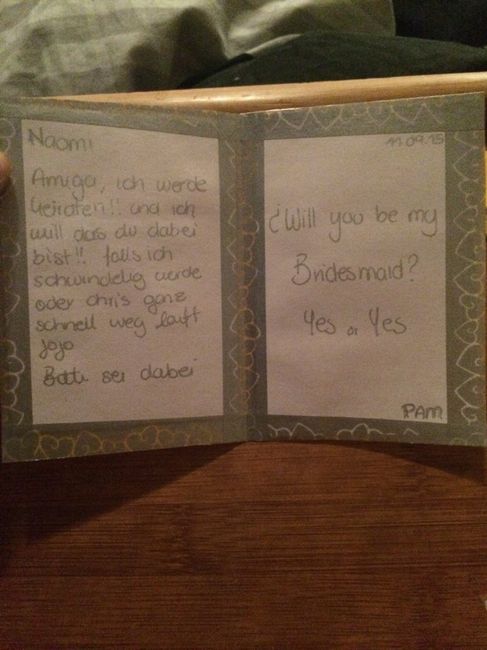 Naomi
Amiga, ich werde
heiraten!! und ich
will das du dabei
bist!! falls ich
schwindelig werde
oder chris ganz
schnell weg läuft
jojo
Bitte sei dabei
11.09.15
¿Will you be my
Bridesmaid?
Yes or Yes
PAM